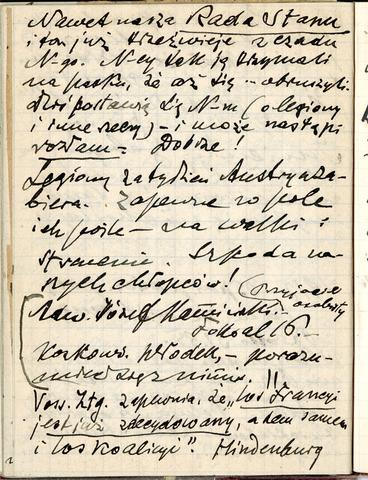 Nawet nasza Rada Stanu
i ton już trzeźwieje z czadu
N-go. N-cy tak ją trzymali
na pasku, że aż się – oburzyli.
Dziś postawią się N-m (o legiony
i inne rzeczy) – i może nastąpi
rozłam – Dobrze!
Legiony za tydzień Austrya za-
biera. Zapewne w pole
ich pośle – na walki i
stracenie. Szkoda na-
szych chłopców! (przyjaciel
Józef osobisty
16.–
Włodek, – porozu-
mieć się z nimi. !!
Voss. Ztg. zapewnia, że „los Francyi
jest już zdecydowany, a tem samem
i los koalicyi". Hindenburg